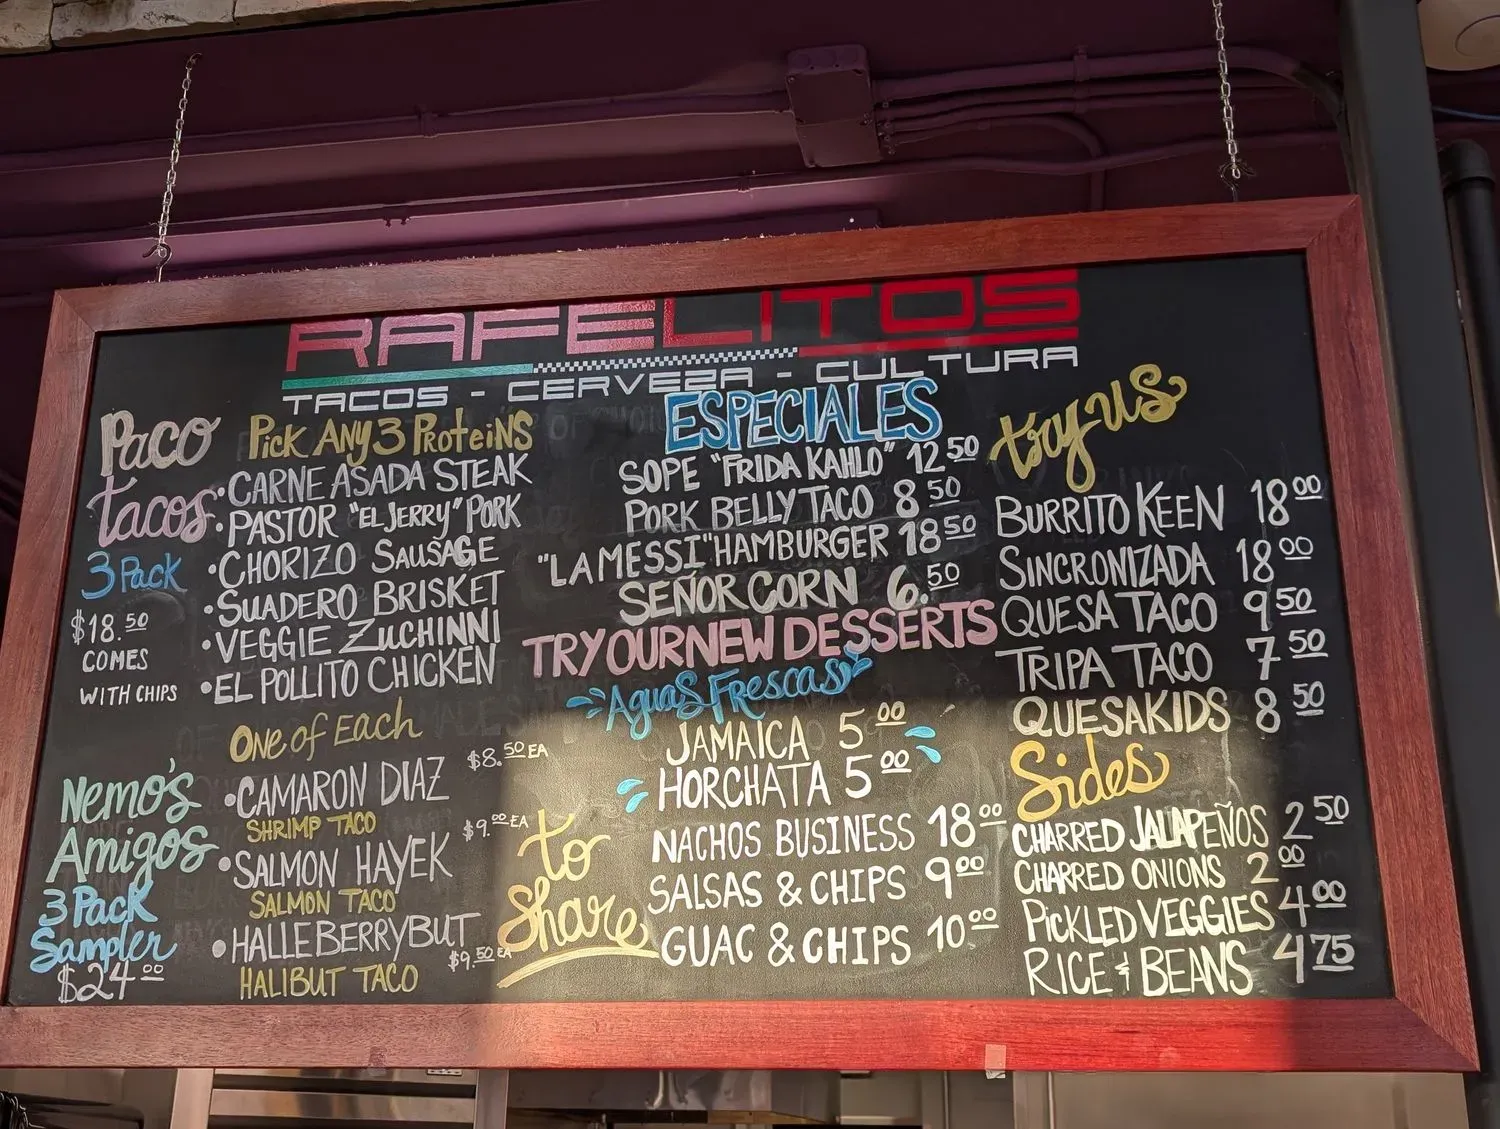 RAFELITOS
TACOS - CERVEZA - CULTURA
Paco
tacos
3 Pack
$18.50
COMES
WITH CHIPS
PICK ANY 3 PROTEINS
• CARNE ASADA STEAK
• PASTOR "EL JERRY" PORK
• CHORIZO SAUSAGE
• SUADERO BRISKET
• VEGGIE ZUCHINNI
• EL POLLITO CHICKEN
Nemo's
Amigos
3 Pack
Sampler
$24.00
ONE OF EACH
• CAMARON DIAZ $8.50 EA
SHRIMP TACO
• SALMON HAYEK $9.00 EA
SALMON TACO
• HALLE BERRYBUT $9.50 EA
HALIBUT TACO
ESPECIALES
SOPE "FRIDA KAHLO" 12 50
PORK BELLY TACO 8 50
"LA MESSI" HAMBURGER 18 50
SEÑOR CORN 6.50
TRY OUR NEW DESSERTS
AGUAS FRESCAS
JAMAICA 5 00
HORCHATA 5 00
to
share
NACHOS BUSINESS 18 00
SALSAS & CHIPS 9 00
GUAC & CHIPS 10 00
try us
BURRITO KEEN 18 00
SINCRONIZADA 18 00
QUESA TACO 9 50
TRIPA TACO 7 50
QUESAKIDS 8 50
Sides
CHARRED JALAPEÑOS 2 50
CHARRED ONIONS 2 00
PICKLED VEGGIES 4 00
RICE & BEANS 4 75